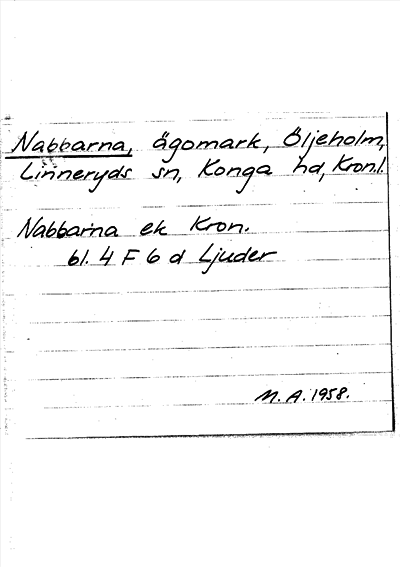 Nabbarna, ägomark, Öljeholm,
Linneryds sn, Konga hd, Kron.l.
Nabbarna ek Kron.
bl. 4 F 6 d Ljuder
M. A. 1958.